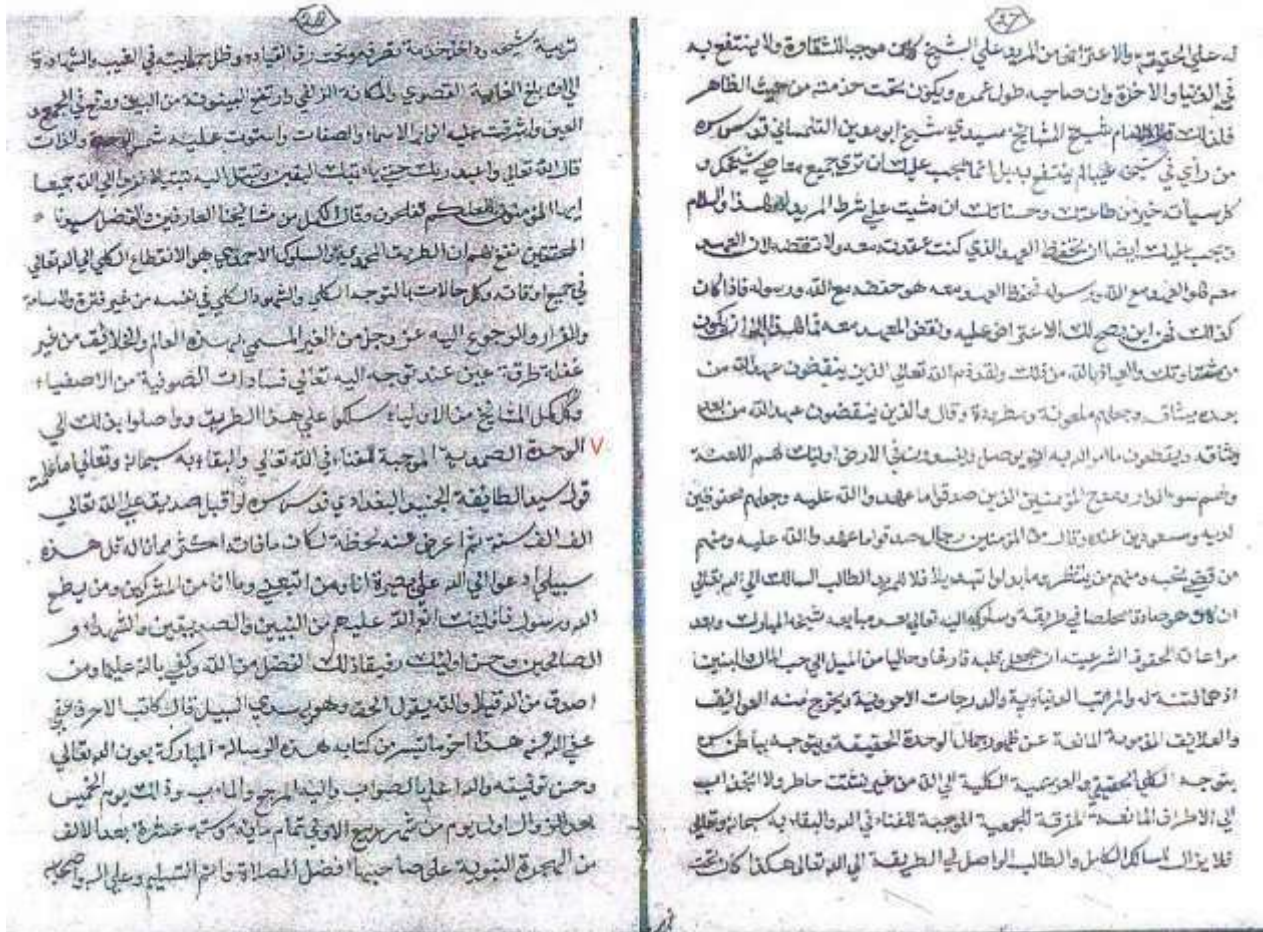 ٤٧
له علي الحقيقة والاعتراض من المريد علي الشيخ كان موجب الشقاوة ولا ينتفع به
في الدنيا والاخرة وان صاحبه طول عمره ويكون تحت خدمته من حيث الظاهر
فلذلك قال الامام شيخ المشايخ سيدي شيخ ابو مدين التلمساني قدس سره
من رأي في شيخه عيبا لم ينتفع به بل انما يجب عليك ان تري جميع معاصي شيخك و
كل سيأت خير من طاعتك وحسناتك ان مشيت علي شرط المريد والسلام
ويجب عليك ايضا ان تحفظ العهد والذي كنت عقدته معه ولا تنقضه لان العهد
معه هو العهد مع الله ورسوله فحفظ العهد معه هو حفظه مع الله ورسوله فاذا كان
كذالك فمن اين يصح لك الاعتراض عليه ونقض العهد معه يكون
من شقاوتك والعياذ بالله من ذلك ولقد ذم الله تعالي الذين ينقضون عهد الله من
بعد ميثاقه وجعلهم ملعونة ومطرودة وقال والذين ينقضون عهد الله من بعد
ميثاقه ويقطعون ما امر الله به ان يوصل ويفسدون في الارض اوليك لهم اللعنة
ولهم سوء الدار ومدح المؤمنين الذين صدقوا ما عهدوا الله عليه وجعلهم
لديه ومسعودين عنده وقال من المؤمنين رجال صدقوا ما عهدوا الله عليه ومنهم
من قضي نحبه ومنهم من ينتظر وما بدلوا تبديلا فلا للمريد الطالب السالك الي الله تعالي
ان كان هو صادقا مخلصا في طريقة وسلوكه اليه تعالي بعد مبايعه شيخه المبارك وبعد
مراعات الحقوق الشرعية ان يجعل قلبه فارغا وخاليا من الميل الي حب المال والبنين
اذ هما فتنة له والمراتب الدنياوية والدرجات الاخروية ويخرج منه العوايق
والعلايق المانعة عن ظهور جمال الوحدة الحقيقة ويتوجه
بتوجه الكلي الحقيقي الكلية الي الله من غير تشتت خاطر ولا انجذاب
الي الاطراف المانعة المفرقة للجمعية الموجبة للفناء في الله والبقاء به سبحانه وتعالي
فلا يزال السالك الكامل والطالب الواصل في الطريقة الي الله تعالي هكذا كان تحت
٤٨
تربية شيخه وداخل خدمة وتحت رق القياده وظل حمايته في الغيب والشهادة
الي ان بلغ الغاية القصوي والمكانة الزلفي وارتفع البينونة من البين ووقع في الجمع و
العين واشرقت عليه انوار الاسماء والصفات واستوت عليه شمس الوحدة والذات
قال الله تعالي واعبد ربك حتي ياتيك اليقين وتبتل اليه تبتيلا وتوبوا الي الله جميعا
ايها المؤمنون لعلكم تفلحون وقال لكل من مشايخنا العارفين والفضل
المحققين نفع بهم ان الطريق المحمدية والسلوك الاحمدي هو الانقطاع الكلي الي الله تعالي
في جميع اوقاته وكل حالات بالتوجه الكلي والشهود الكلي في نفسه من غير فترة ولاسامة
والفرار والرجوع اليه عز وجل من الغير المسمي بهذه العالم والخلائق من غير
غفلة طرفة عين عند توجه اليه تعالي فسادات الصوفية من الاصفياء
وكل المشايخ من الاولياء سلكوا علي هذا الطريق وواصلوا بذلك الي
٧ الوحدة الصمدية الموجبة للفناء في الله تعالي والبقاء به سبحانه وتعالي
قول سيد الطائفة الجنيد البغدادي قدس سره لو اقبل صديق علي الله تعالي
الف الف سنة ثم اعرض عنه لحظة لكان ما فاته اكثر مما ناله قل هذه
سبيلي ادعوا الي الله علي بصيرة انا ومن اتبعني وما انا من المشركين ومن يطع
الله ورسوله فأوليك انعم الله عليهم من النبيين والصديقين والشهداء و
الصالحين وحسن اوليك رفيقا ذلك الفضل من الله وكفي بالله عليما ومن
اصدق من الله قيلا والله يقول الحق وهو يهدي السبيل قال كاتب الاحرف
عفي الله عنه هذا آخر ما تيسر من كتابه هذه الرسالة المباركة بعون الله تعالي
وحسن توفيقه والله اعلم بالصواب واليه المرجع والمآب وذالك يوم الخميس
بعد الزوال اول يوم من شهر ربيع الاول تمام مايه وسته عشرة بعد الالف
من الهجرة النبوية علي صاحبها افضل الصلاة واتم التسليم وعلي اله واصحابه